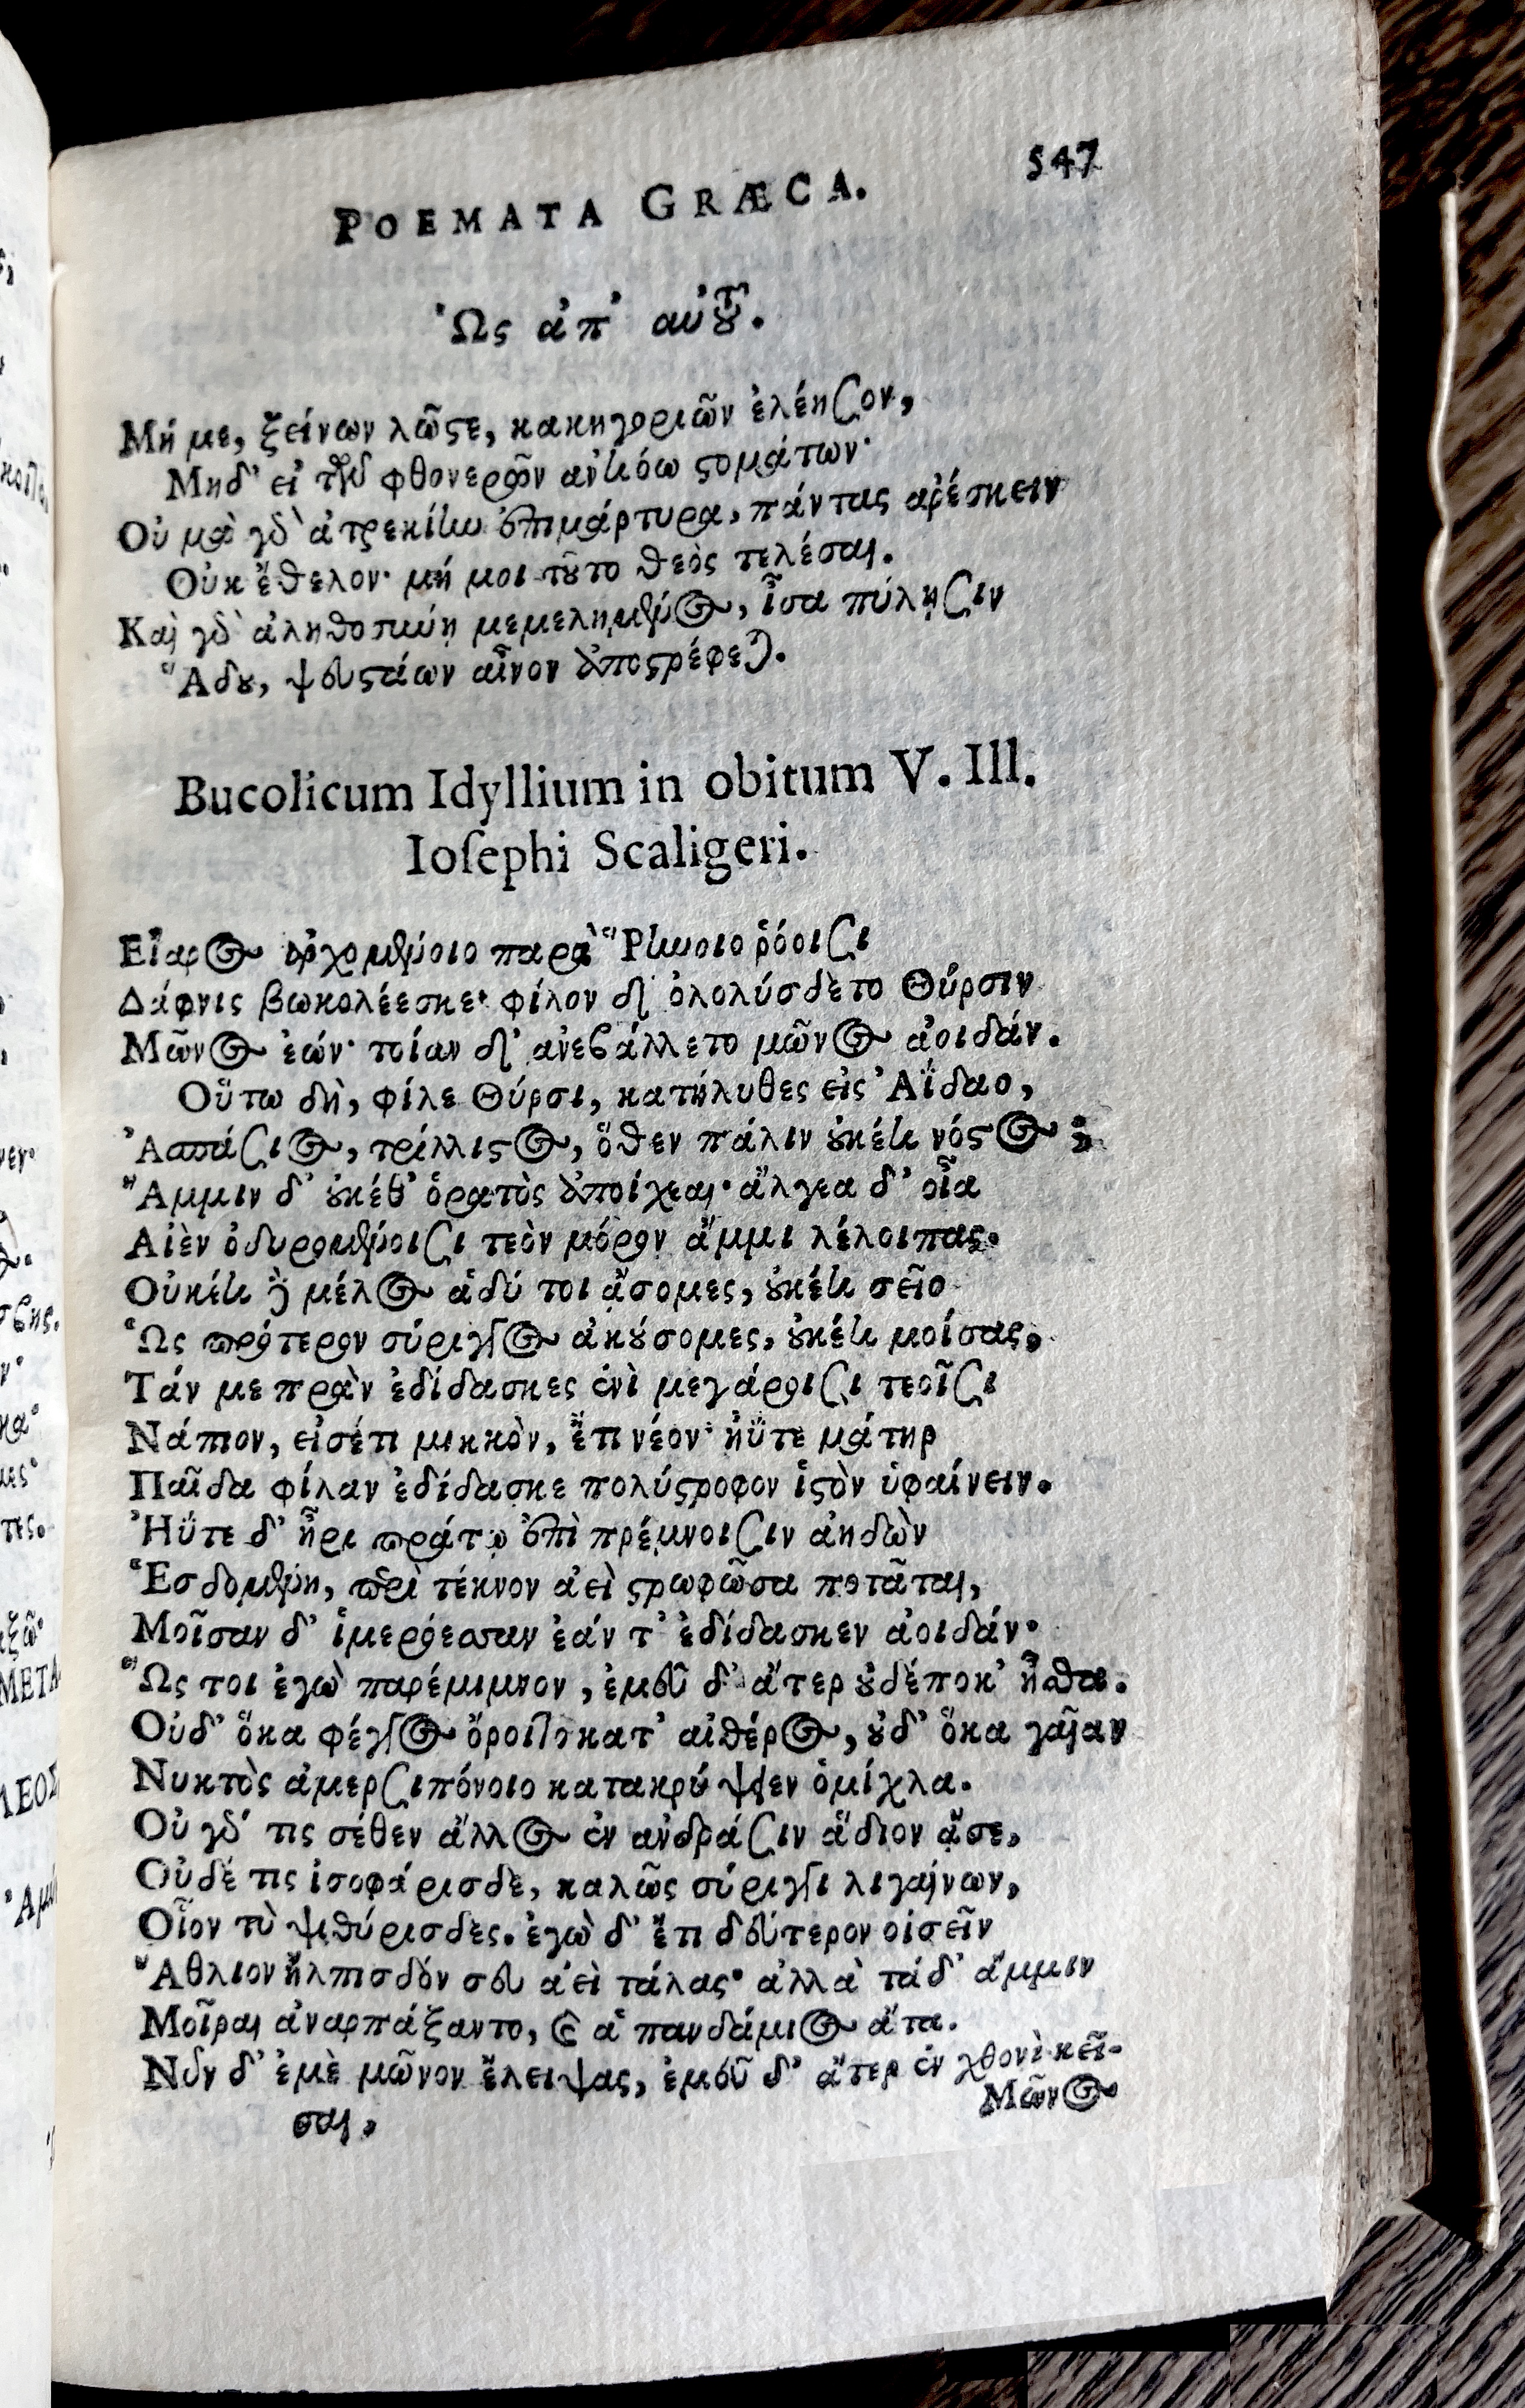 POEMATA GRÆCA. 547
Ὡς ἀπ' αὐτοῦ.
Μή με, ξείνων λῶϛε, κακηγοριῶν ἐλέησον,
Μηδ' εἰ τῶν φθονερῶν ἀντιόω ϛομάτων·
Οὐ μὰ γὰρ ἀτρεκίην ἐπιμάρτυρα, πάντας ἀρέσκειν
Οὐκ ἔθελον· μή μοι τοῦτο θεὸς τελέσαι.
Καὶ γὰρ ἀληθοσύνῃ μεμελημένος, ἶσα πύλῃσιν
Ἅδου, ψευϛάων αἶνον ἀποϛρέφεται.
Bucolicum Idyllium in obitum V. Ill.
Ioſephi Scaligeri.
Εἴαρος ἀρχομένοιο παρὰ Ῥήνοιο ῥόοισι
Δάφνις βωκολέεσκε· φίλον δ' ὀλολύσδετο Θύρσιν
Μῶνος ἐών· τοίαν δ' ἀνεβάλλετο μῶνος ἀοιδάν.
Οὕτω δὴ, φίλε Θύρσι, κατήλυθες εἰς Ἀΐδαο,
Ἀσπάσιος, τρίλλιϛος, ὅθεν πάλιν οὐκέτι νόϛος;
Ἄμμιν δ' οὐκέθ' ὁρατὸς ἀποίχεαι· ἄλγεα δ' οἷα
Αἰὲν ὀδυρομένοισι τεὸν μόρον ἄμμι λέλοιπας.
Οὐκέτι δὲ μέλος ἁδύ τοι ᾄσομες, οὐκέτι σεῖο
Ὡς πρότερον σύριγγος ἀκούσομες, οὐκέτι μοίσας,
Τάν με πρὰν ἐδίδασκες ἐνὶ μεγάροισι τεοῖσι
Νάπιον, εἰσέτι μικκὸν, ἔτι νέον· ἠΰτε μάτηρ
Παῖδα φίλαν ἐδίδασκε πολύϛροφον ἱϛὸν ὑφαίνειν.
Ἠΰτε δ' ἦρι πράτῳ ἐπὶ πρέμνοισιν ἀηδὼν
Ἑσδομένη, περὶ τέκνον ἀεὶ ϛρωφῶσα ποτᾶται,
Μοῖσαν δ' ἱμερόεσσαν ἑάν τ' ἐδίδασκεν ἀοιδάν·
Ὥς τοι ἐγὼ παρέμιμνον, ἐμεῦ δ' ἄτερ οὐδέποκ' ἦσθα.
Οὐδ' ὅκα φέγγος ὄροιτο κατ' αἰθέρος, οὐδ' ὅκα γαῖαν
Νυκτὸς ἀμερσιπόνοιο κατακρύψειεν ὁμίχλα.
Οὐ γάρ τις σέθεν ἄλλος ἐν ἀνδράσιν ἅδιον ᾆσε,
Οὐδέ τις ἰσοφάρισδε, καλῶς σύριγγι λιγαίνων,
Οἷον τὺ ψιθύρισδες. ἐγὼ δ' ἔτι δεύτερον οἰσεῖν
Ἄθλιον ἤλπισδόν σευ ἀεὶ τάλας· ἀλλὰ τάδ' ἄμμιν
Μοῖραι ἀναρπάξαντο, καὶ ἁ πανδάμιος ἄτα.
Νῦν δ' ἐμὲ μῶνον ἔλειψας, ἐμεῦ δ' ἄτερ ἐν χθονὶ κεῖ-
σαι,
Μῶνος